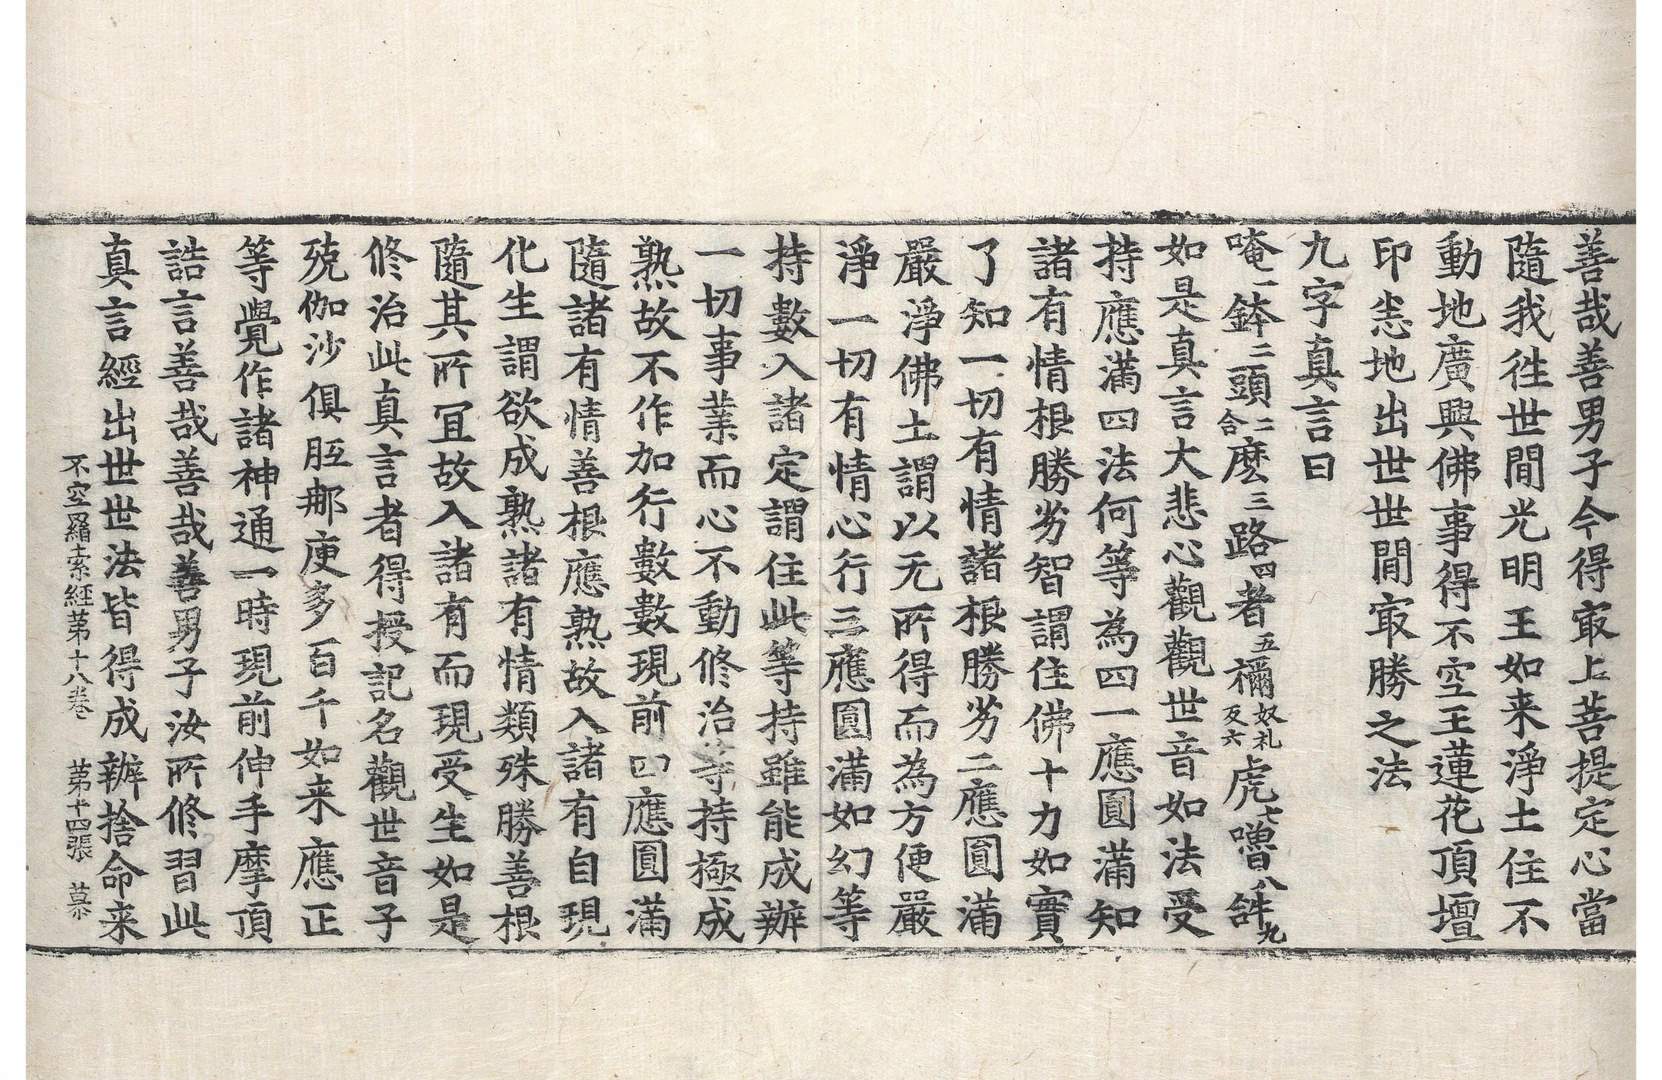 善哉善男子今得㝡上菩提定心當
隨我徃世間光明王如来淨土住不
動地廣興佛事得不空王蓮花頂壇
印悉地出世世間㝡勝之法
九字真言曰
唵一鉢二頭二合麼三路四者五祢奴礼反六虎七嚕八𤙖九
如是真言大悲心觀觀世音如法受
持應滿四法何等為四一應圓滿知
諸有情根勝劣智謂住佛十力如實
了知一切有情諸根勝劣二應圓滿
嚴淨佛土謂以无所得而為方便嚴
淨一切有情心行三應圓滿如幻等
持數入諸定謂住此等持雖能成辦
一切事業而心不動修治等持極成
熟故不作加行數數現前四應圓滿
隨諸有情善根應熟故入諸有自現
化生謂欲成熟諸有情類殊勝善根
隨其所冝故入諸有而現受生如是
修治此真言者得授記名觀世音子
殑伽沙俱胝那庾多百千如来應正
等覺作諸神通一時現前伸手摩頂
誥言善哉善哉善男子汝所修習此
真言經出世世法皆得成辦捨命来
不空羂索経苐十八卷 苐十四張 慕